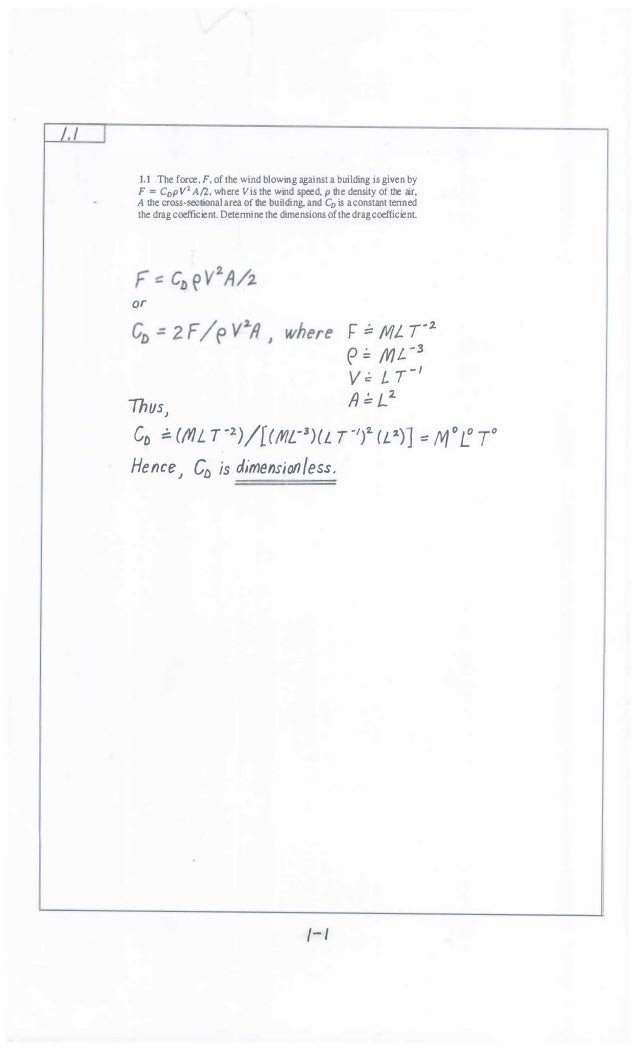 1.1
1.1 The force, F, of the wind blowing against a building is given by
F = C_DρV² A/2, where V is the wind speed, ρ the density of the air,
A the cross-sectional area of the building, and C_D is a constant tenned
the drag coefficient. Determine the dimensions of the drag coefficient.
F = C_D ρV²A/2
or
C_D = 2F/ρV²A, where F ≐ MLT⁻²
ρ ≐ ML⁻³
V ≐ LT⁻¹
A ≐ L²
Thus,
C_D ≐ (MLT⁻²)/[(ML⁻³)(LT⁻¹)²(L²)] = M⁰L⁰T⁰
Hence, C_D is dimensionless.
1-1